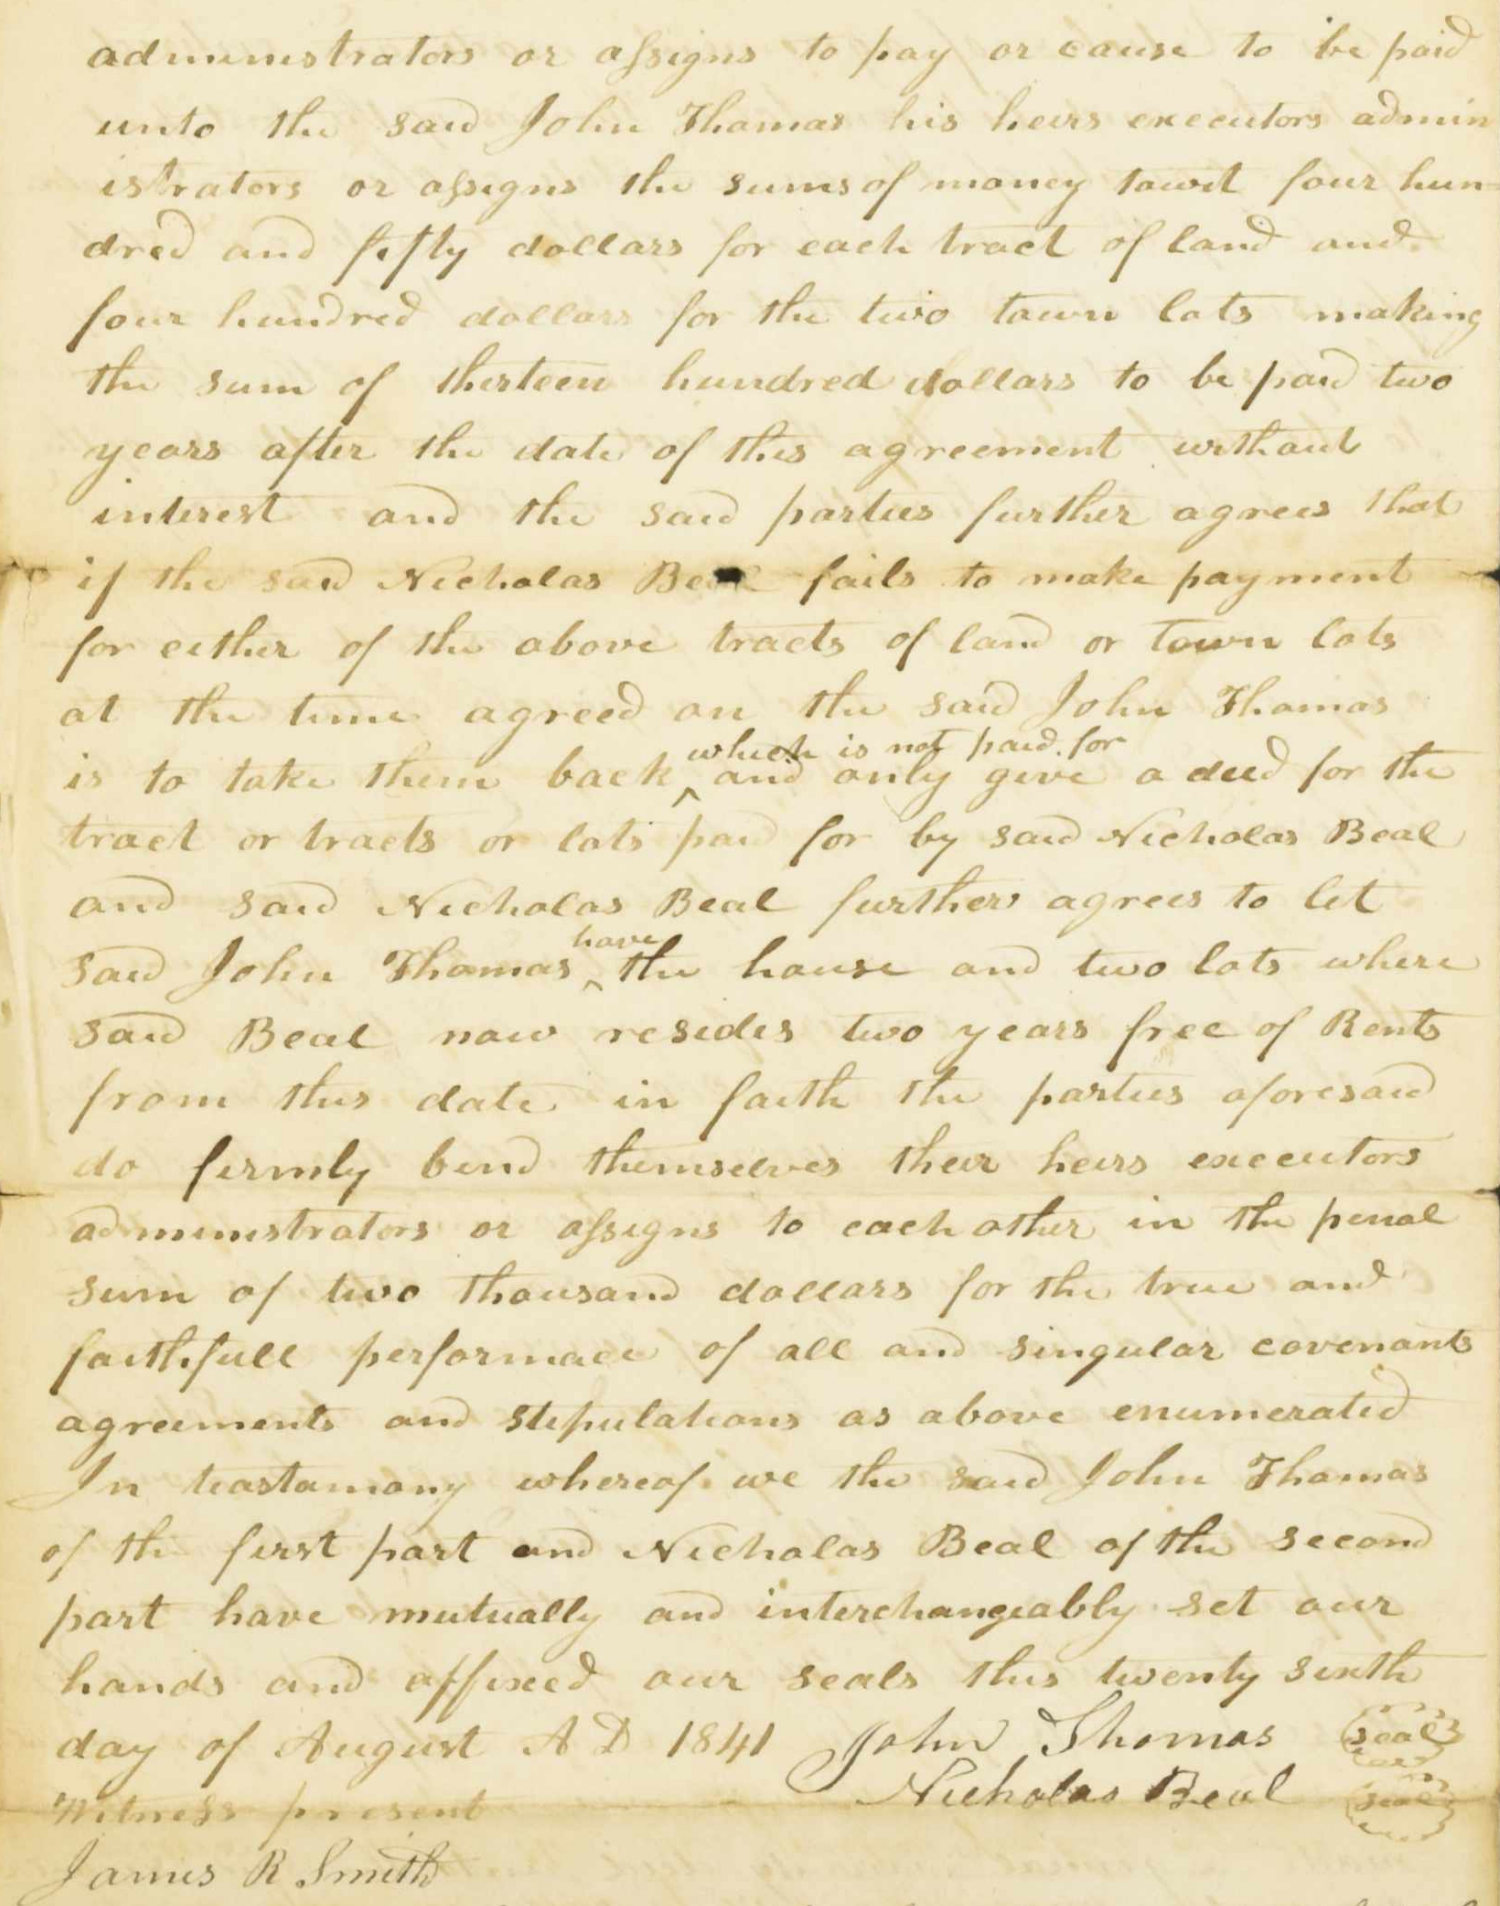 administrators or assigns to pay or cause to be paid
unto the said John Thomas his heirs executors admin
istrators or assigns the sums of money towit four hun=
dred and fifty dollars for each tract of land and
four hundred dollars for the two town lots making
the sum of thirteen hundred dollars to be paid two
years after the date of this agreement without
interest and the said parties further agrees that
if the said Nicholas Beal fails to make payment
for either of the above tracts of land or Town lots
at the time agreed on the said John Thomas
which is not paid for
is to take them back ^ and only give a deed for the
tract or tracts or lots paid for by said Nicholas Beal
and said Nicholas Beal further agrees to let
have
said John Thomas ^ the house and two lots where
said Beal now resides two years free of Rents
from this date in faith the parties aforesaid
do firmly bind themselves their heirs executors
administrators or assigns to each other in the penal
sum of two thousand dollars for the true and
faithfull performace of all and singular covenants
agreements and stipulations as above enumerated
In teastamony whereof we the said John Thomas
of the first part and Nicholas Beal of the second
part have mutually and interchangeably set our
hands and affixed our seals this twenty sixth
day of August A D 1841 John Thomas seal
Nicholas Beal seal
Witness present
James R Smith